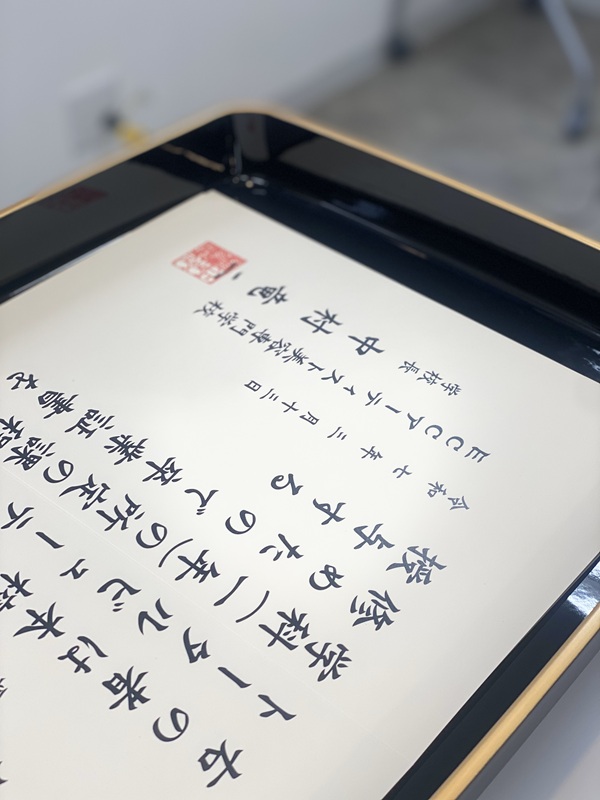 右の者は本校
トータルビューティ
学科(一年)の所定の課程
修めたので卒業証書を
授与する
令和七年三月十三日
ECCアーティスト美容専門学校
学校長 中村